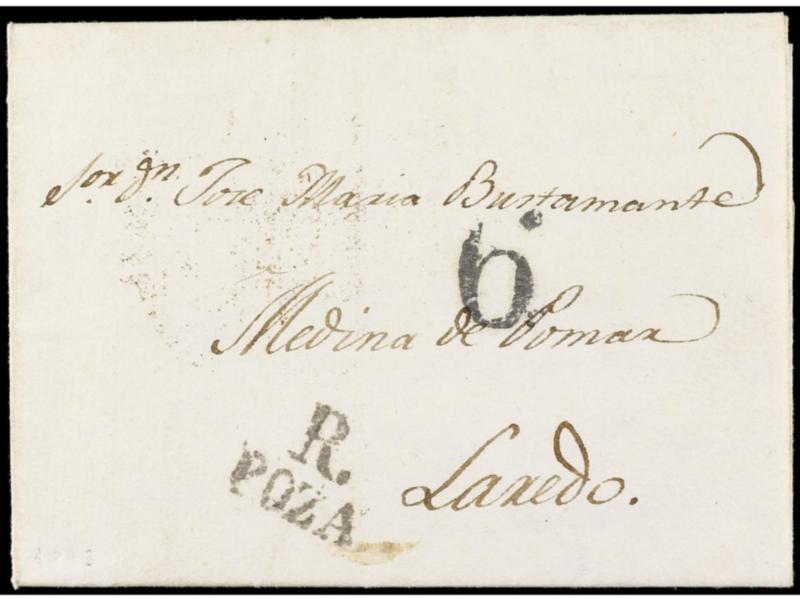 Sor. Dn. Jose Maria Bustamante
6
Medina de Pomar
R.
POZA
Laredo.